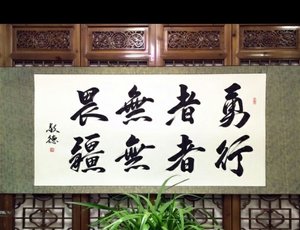 勇者無畏
行者無疆